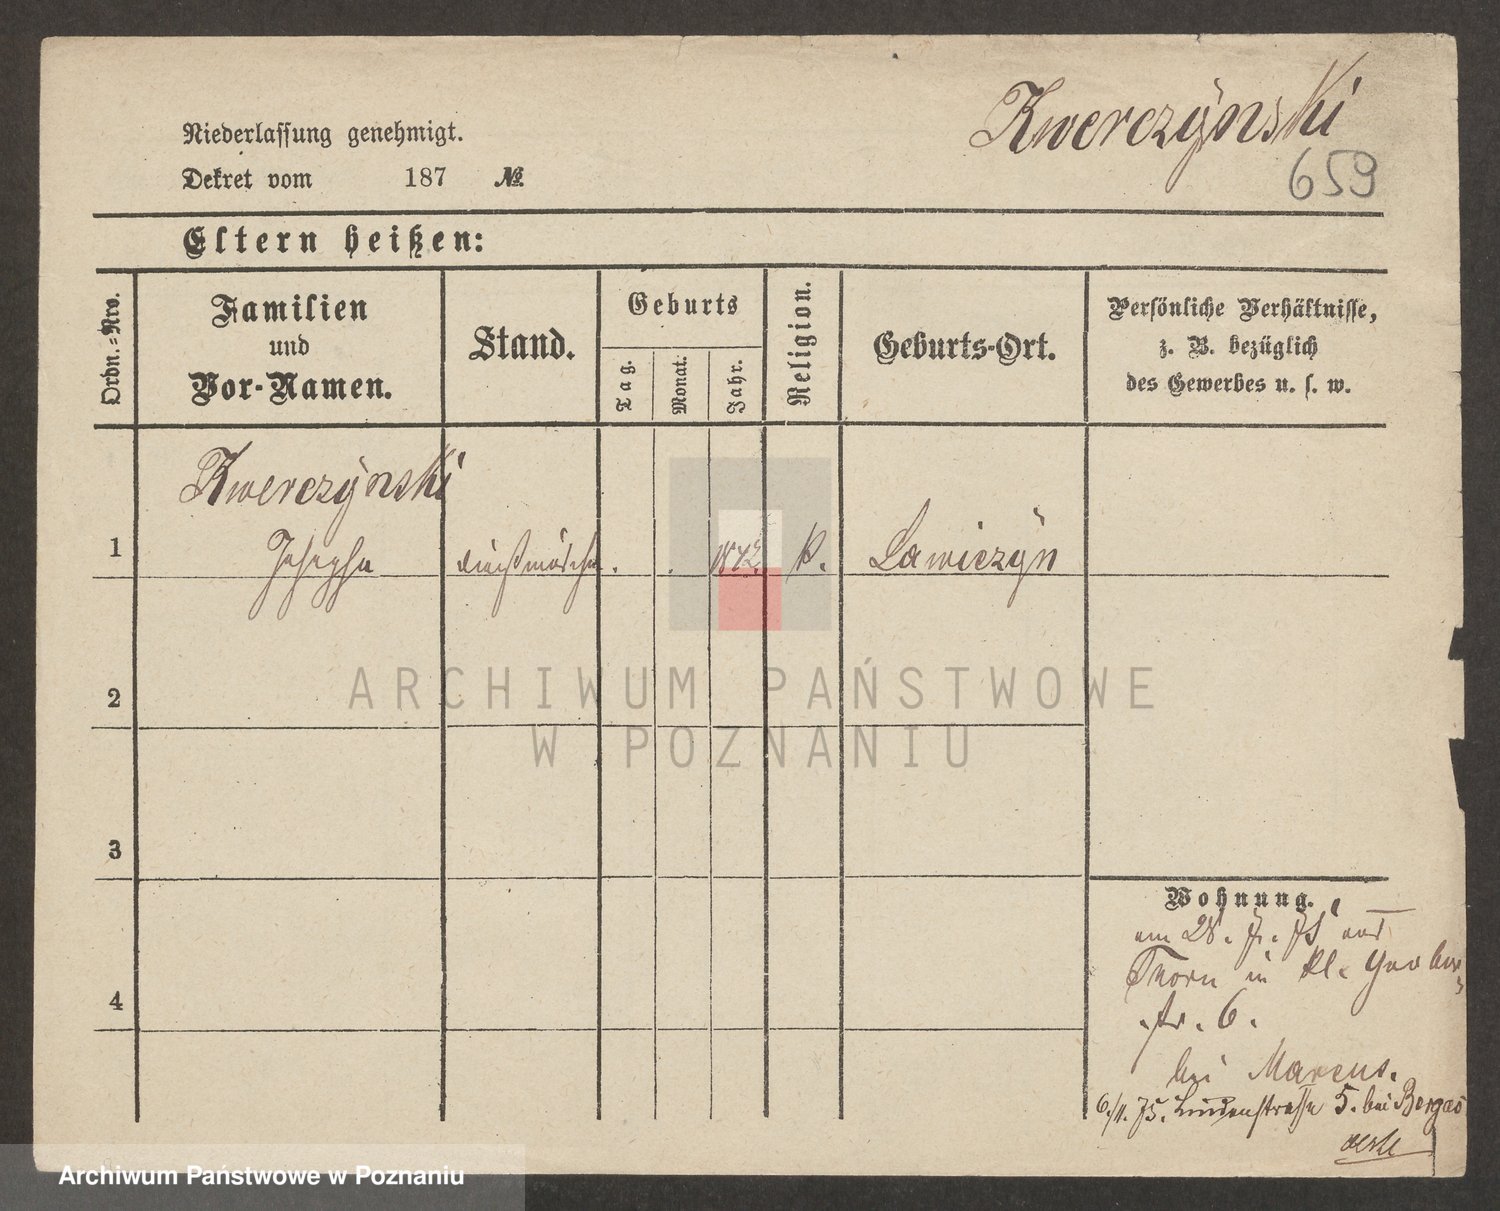 Kwerczÿnski
659
Niederlassung genehmigt.
Dekret vom 187 №
Eltern heißen:
Ordn.-Nro.
Familien
und
Vor-Namen.
Stand.
Geburts
Tag.
Monat.
Jahr.
Religion.
Geburts-Ort.
Persönliche Verhältnisse,
z. B. bezüglich
des Gewerbes u. s. w.
Kwerczÿnski
1 Josepha 1842. K. Lawiczÿn
ARCHIWUM PAŃSTWOWE
W POZNANIU
2
3
4
Wohnung.
am 28. 7. 75 aus
Thorn in Kl. Gerber
str. 6.
bei Marcus.
6/11. 75. Lindenstrasse 5. bei
Archiwum Państwowe w Poznaniu